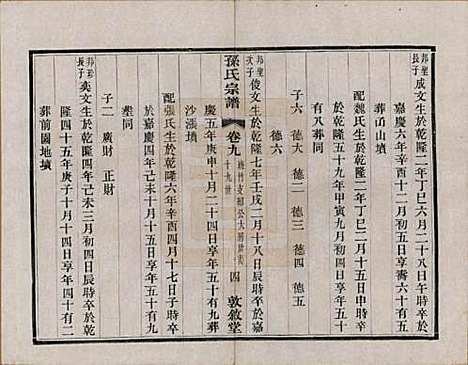 邦聖長子 成文生於乾隆二年丁巳六月二十日辰時卒於
嘉慶六年辛酉十一月十四日享壽六十有五
葬甬山墳
配魏氏生於乾隆二年丁巳二月十五日申時卒
於乾隆五十九年甲寅九月初四日享年五十
有八葬同
子六 德大 德二 德三 德四 德五
德六
邦聖次子 俊文生於乾隆七年壬戌二月十八日辰時卒於嘉
孫氏宗譜 卷九 十九世 四 敦敘堂
慶五年庚申十月二十四日享年五十有九葬
沙漲墳
配張氏生於乾隆六年辛酉四月十七日子時卒
於嘉慶四年己未十月十五日享年五十有九
塟同
子二 廣財 正財
邦珍長子 奕文生於乾隆四年己未三月初四日辰時卒於乾
隆四十五年庚子十月十四日享年四十有二
葬前園地墳